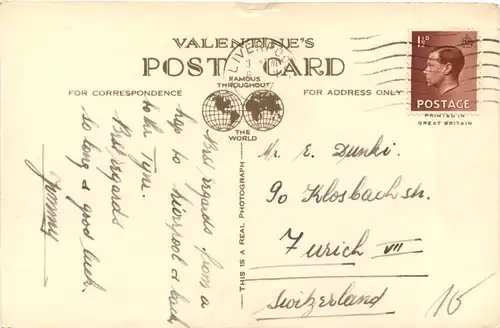 VALENTINE'S
POST CARD
FAMOUS
THROUGHOUT
THE
WORLD
FOR CORRESPONDENCE
FOR ADDRESS ONLY
THIS IS A REAL PHOTOGRAPH
LIVERPOOL
1½D
POSTAGE
PRINTED IN
GREAT BRITAIN
Best regards from a
trip to Liverpool & back
to the Tyne.
Best regards
so long & good luck.
Jimmy
Mr. E. Dunki.
90 Klosbachstr.
Zurich VII
Switzerland